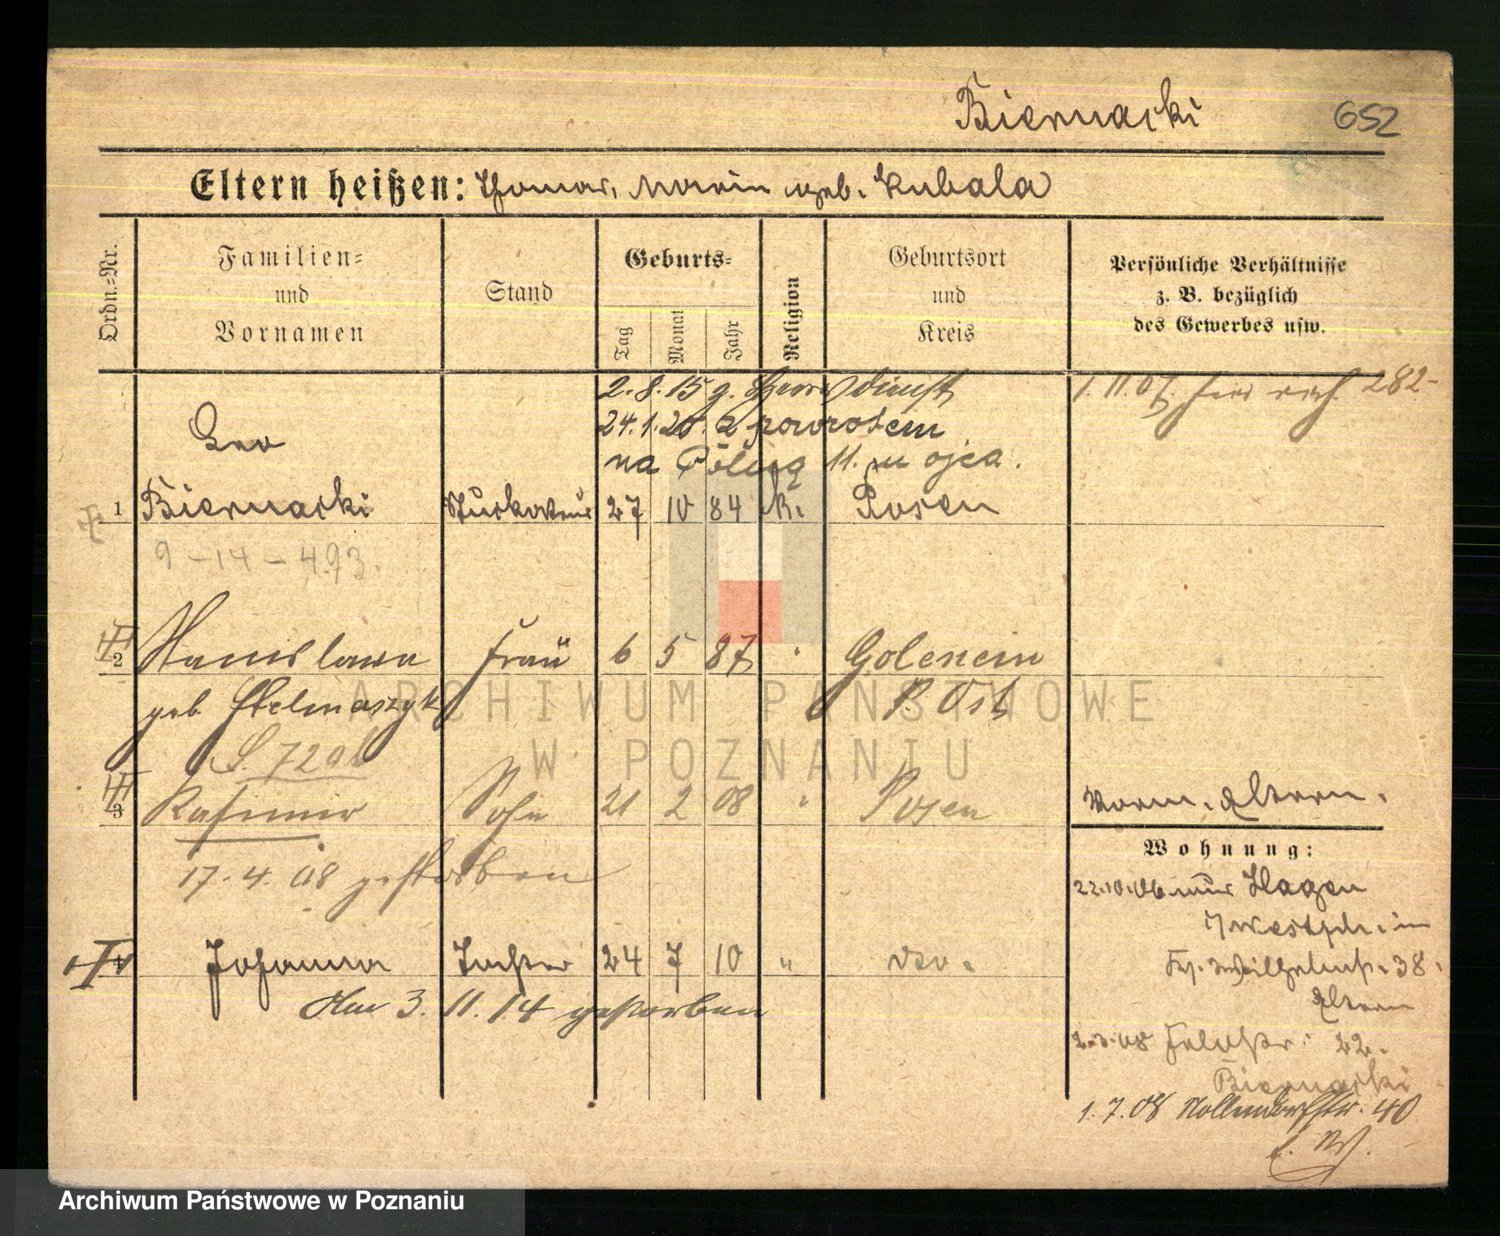 Biernacki 652
Eltern heißen: Thomas, Maria geb. Kubala
Ordn.=Nr.
Familien=
und
Vornamen
Stand
Geburts=
Tag
Monat
Jahr
Religion
Geburtsort
und
Kreis
Persönliche Verhältnisse
z. B. bezüglich
des Gewerbes usw.
2.8.15 z. Heeresdienst
1.11.07.
282
24.1.20. z powrotem
na 11. u ojca.
Leo
1 Biernacki Stuckateur 27 10 84 k. Posen
9-14-493.
2 Stanislawa Frau 6 5 87 " Golenein
geb. Stelmaszyk P. Ost
S. 729b
3 Kasimir Sohn 21 2 08 " Posen
17.4.08 gestorben
4 Johanna Tochter 24 7 10 " dto.
Am 3. 11. 14 gestorben
Vorm. Eltern.
Wohnung:
22.10.06 aus Hagen
i/Westph. in
38.
Eltern
2.3.08 Feldstr. 22.
Biernacki
1.7.08 Nollendorfstr. 40
ARCHIWUM PAŃSTWOWE
W POZNANIU
Archiwum Państwowe w Poznaniu